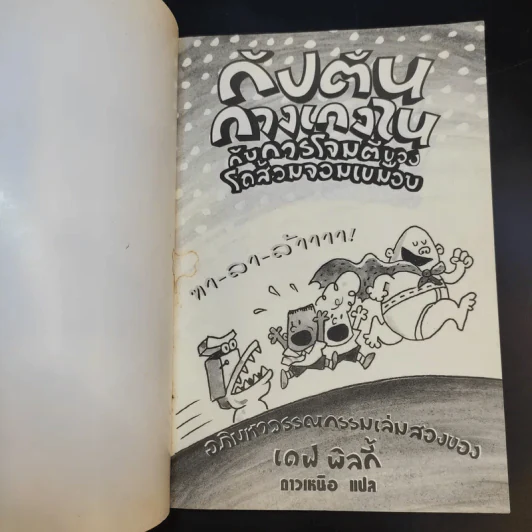 กัปตัน
กางเกงใน
กับการโจมตีของ
โถส้วมจอมเขมือบ
ทา-ลา-ล้าาาา!
อภิมหาวรรณกรรมเล่มสองของ
เดฟ พิลกี้
ดาวเหนือ แปล